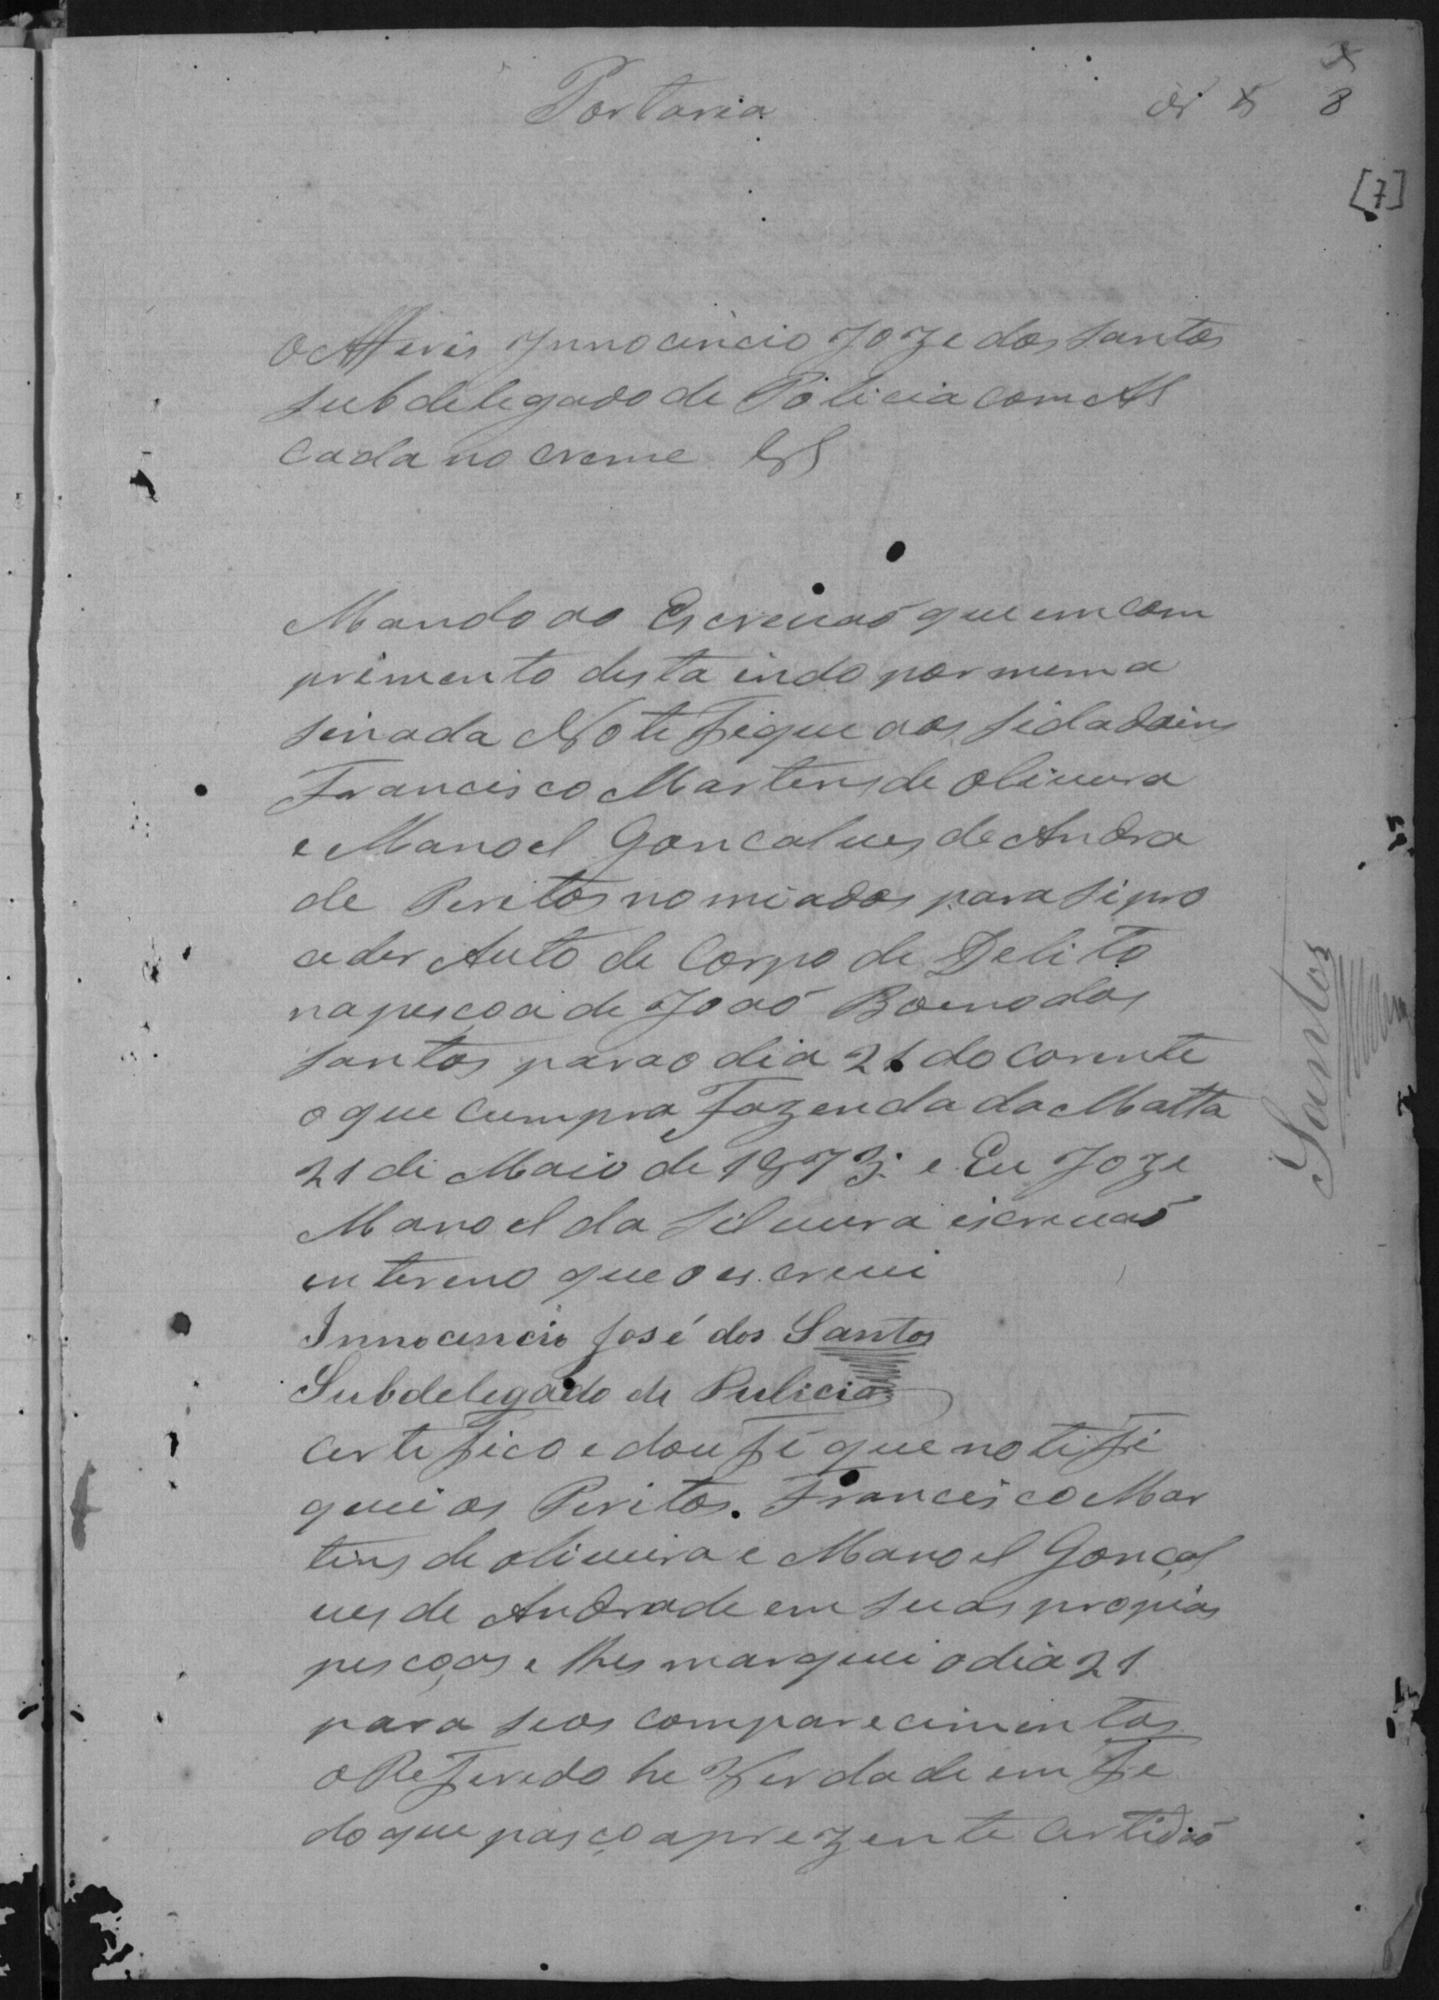 Portaria
8
[7]
O Alferis Innocencio Joze dos Santos
Subdelegado de Policia com Al
cada no creme
Mando ao Escrevaõ que em com
primento desta indo por mim a
sinada Notefique aos sidadains
Francisco Martins de Oliveira
e Manoel Goncalves de Andra
de Peritos nomiados para si pro
ceder Auto de Corpo de Delito
na pescoa de Joaõ Boeno dos
Santos para o dia 21 do corente
o que cumpra Fazenda da Matta
21 de Maio de 1873. e Eu Joze
Manoel da Silveira iscrevaõ
intereno que o escrevi
Innocencio José dos Santos
Subdelegado de Pulicia
Certefico e dou fé que notifi
quei os Peritos. Francisco Mar
tins de Oliveira e Manoel Gonçal
ves de Andrade em suas propias
pesçoas e lhes marquei o dia 21
para seos comparecimentos
o Referedo he Verdade em fe
do que pasço a prezente Certidaõ
Santos